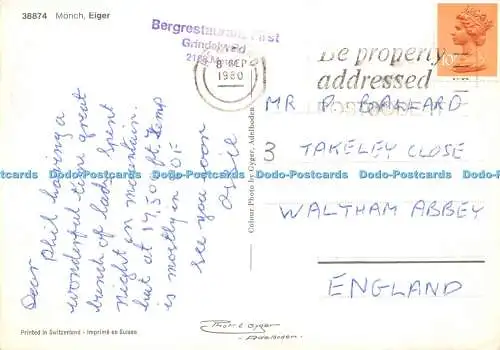 38874 Mönch, Eiger
Bergrestaurant First
Grindelwald
8 SEP
1980
Be properly
addressed
POSTCODE IT
Dear Phil having a
wonderful time great
bunch of lads, spent
night in mountain
hut at 14,500 ft. Temp
is mostly in 80F
see you soon
MR P BALLARD
3 TAKELEY CLOSE
WALTHAM ABBEY
ENGLAND
Colour Photo by Gyger, Adelboden
Printed in Switzerland - Imprimé en Suisse
Gyger
Adelboden
Dodo-Postcards Dodo-Postcards Dodo-Postcards Dodo-Postcards
Dodo-Postcards Dodo-Postcards Dodo-Postcards Dodo-Postcards